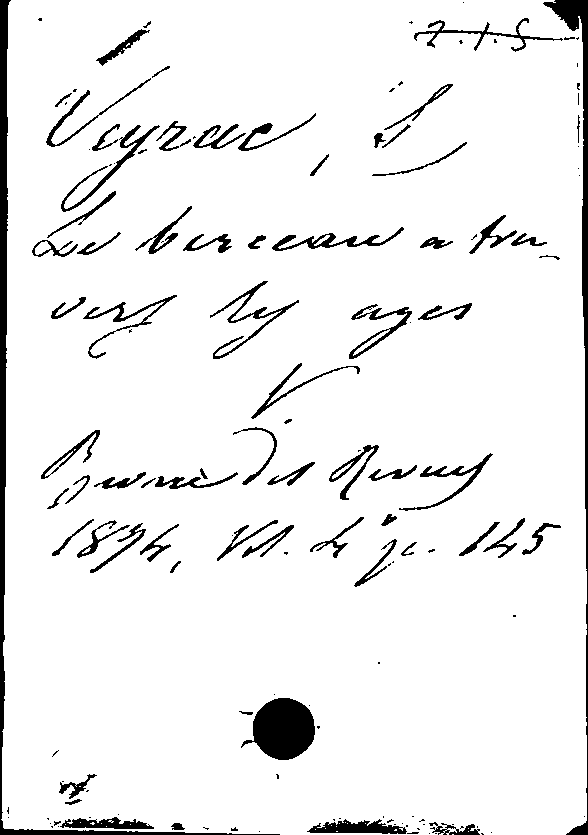 Z.1.5
Veyrac, S
Le berceau a tra-
vers les ages
V.
Revue des Revues
1894, Vol. 4 p. 145